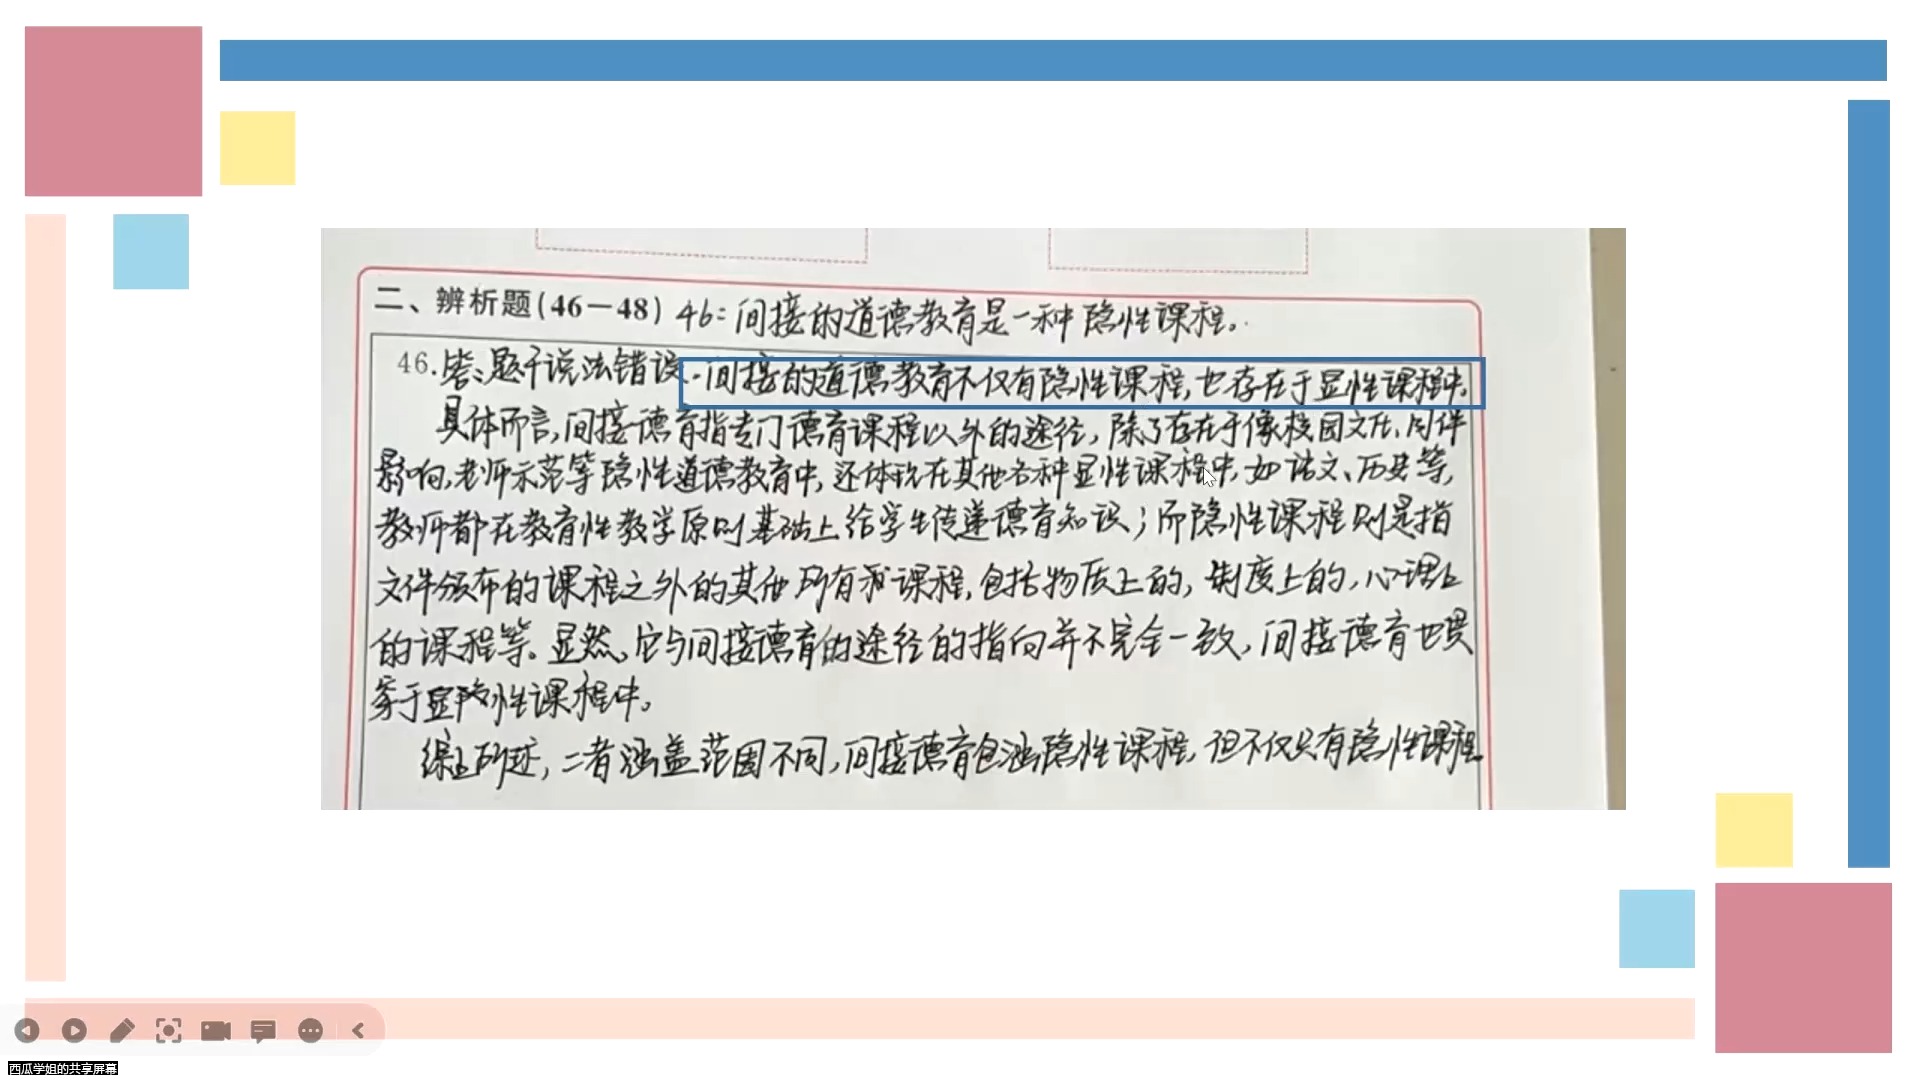 二、辨析题(46—48) 46：间接的道德教育是一种隐性课程。
46.答：题干说法错误.间接的道德教育不仅有隐性课程，也存在于显性课程中。
具体而言，间接德育指专门德育课程以外的途径，除了存在于像校园文化、同伴
影响，老师示范等隐性道德教育中，还体现在其他各种显性课程中，如语文、历史等，
教师都在教育性教学原则基础上给学生传递德育知识；而隐性课程则是指
文件颁布的课程之外的其他所有课程，包括物质上的，制度上的，心理上
的课程等。显然，它与间接德育的途径的指向并不完全一致，间接德育也贯
穿于显性课程中。
综上所述，二者涵盖范围不同，间接德育包涵隐性课程，但不仅只有隐性课程。
西瓜学姐的共享屏幕